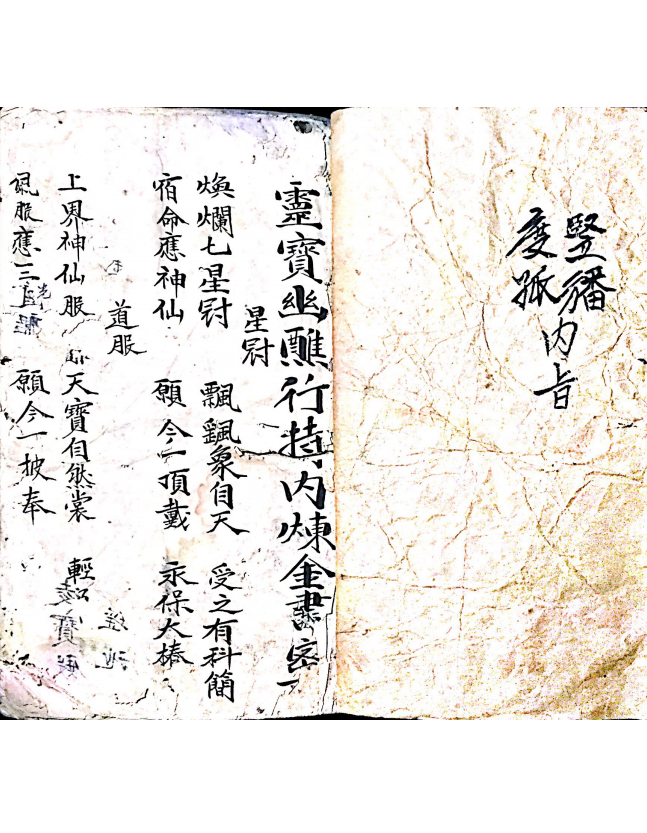 竪旛內旨
度孤
靈寶幽醮行持內煉金書密
星冠
煥爛七星冠 飄飄象自天 受之有科簡
宿命應神仙 願今一頂戴 永保大椿
道服
上界神仙服 天寶自然裳 輕
佩服應三 願今一披奉